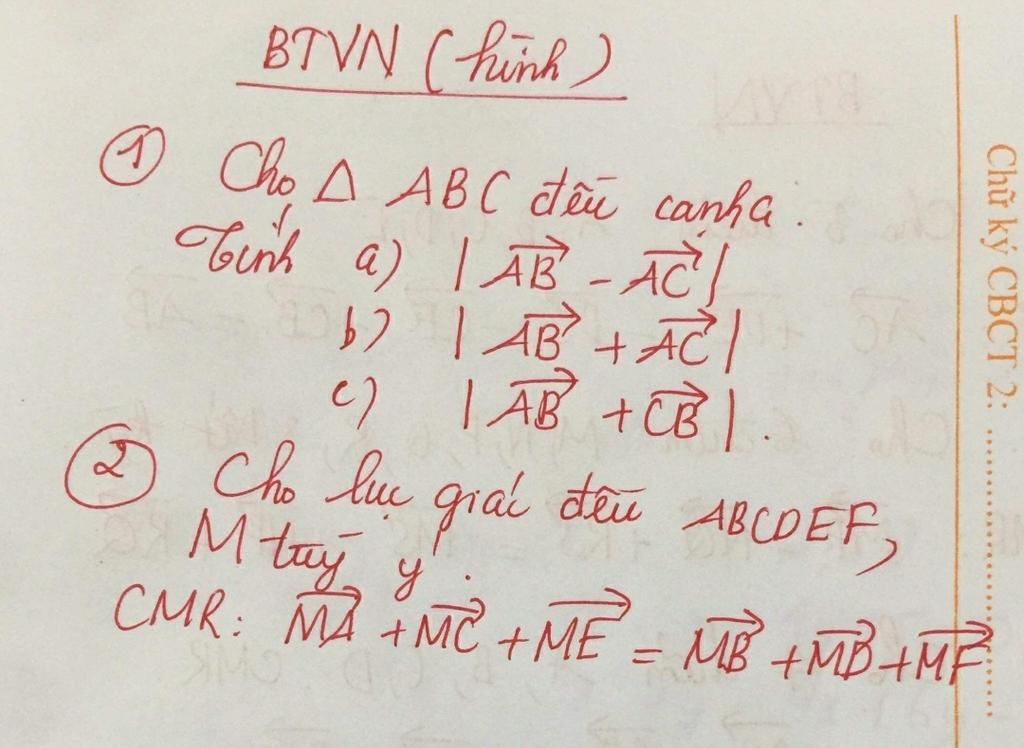 BTVN (hình)
① Cho Δ ABC đều cạnh a.
Tính a) |$\overrightarrow{AB}$ - $\overrightarrow{AC}$|
b) |$\overrightarrow{AB}$ + $\overrightarrow{AC}$|
c) |$\overrightarrow{AB}$ + $\overrightarrow{CB}$|.
② Cho lục giác đều ABCDEF,
M tuỳ ý.
CMR: $\overrightarrow{MA}$ + $\overrightarrow{MC}$ + $\overrightarrow{ME}$ = $\overrightarrow{MB}$ + $\overrightarrow{MD}$ + $\overrightarrow{MF}$
Chữ ký CBCT 2: ........................